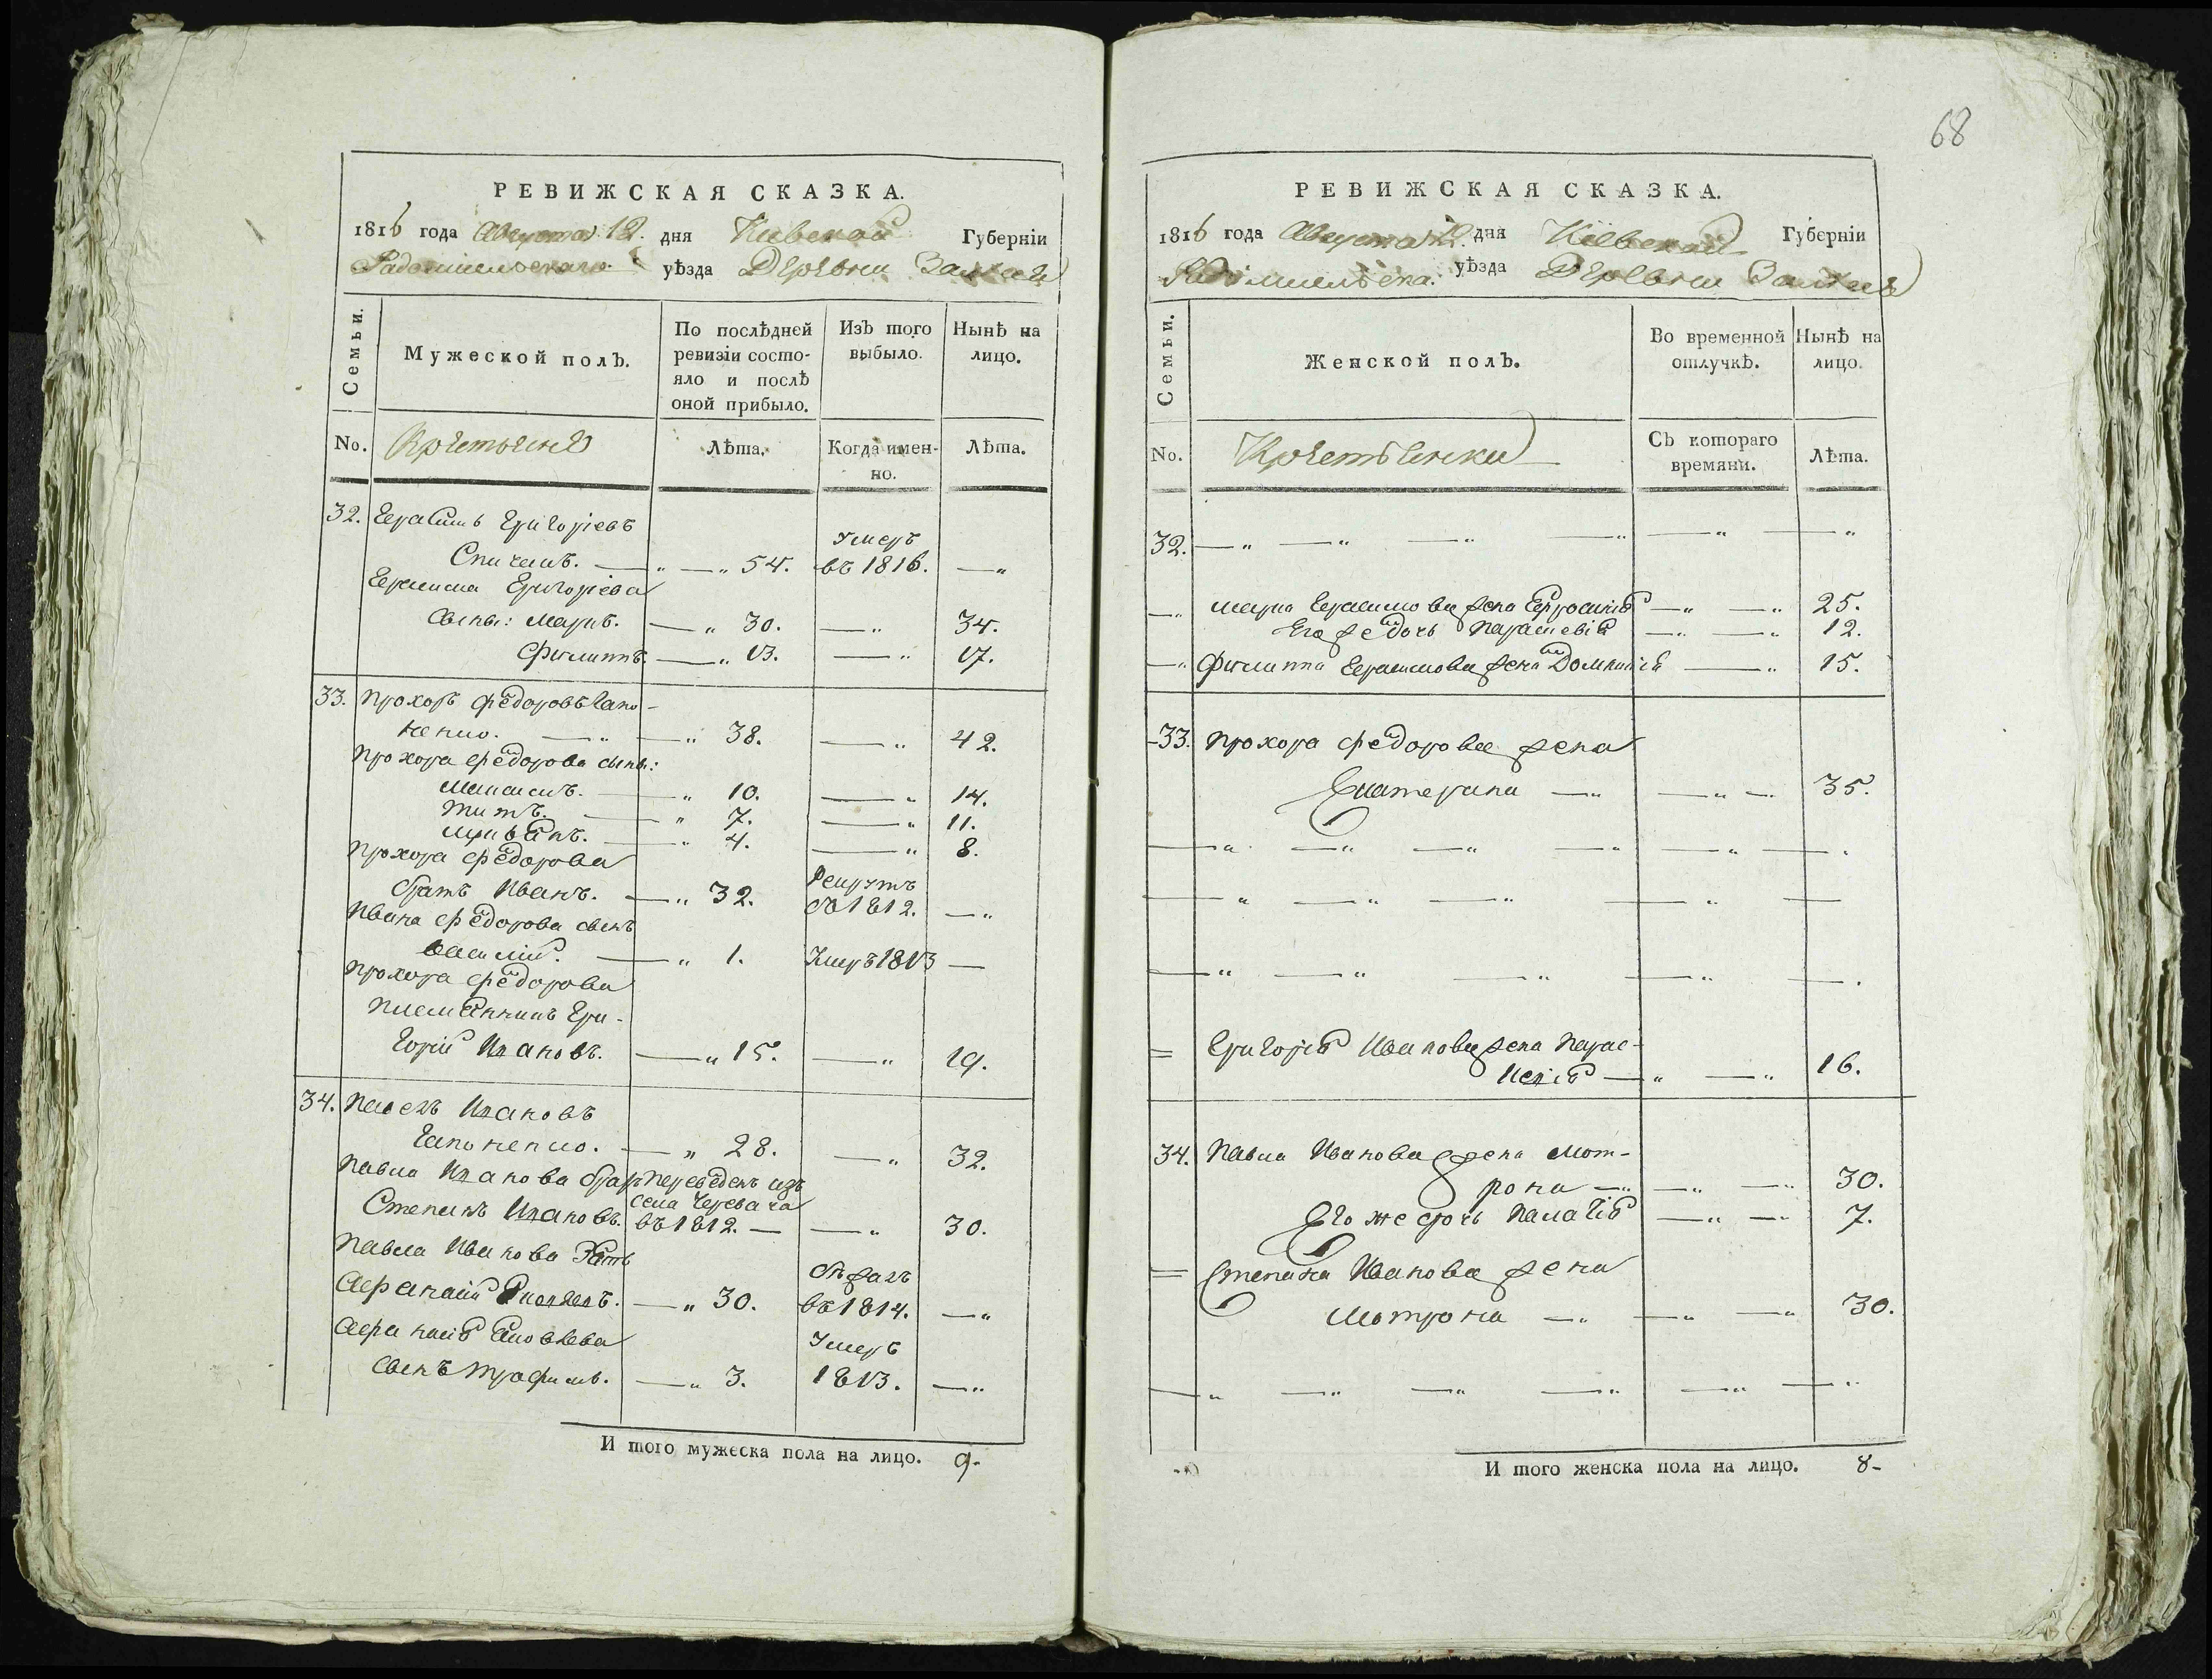 РЕВИЖСКАЯ СКАЗКА.
1816 года Августа 12. дня Киевской Губернiи
Радомисльскаго уѣзда Деревни
Семьи.
Мужеской полъ.
По послѣдней ревизiи состояло и послѣ оной прибыло.
Изъ того выбыло.
Нынѣ на лицо.
No. Крестьяне
Лѣта.
Когда именно.
Лѣта.
32. Герасимъ Григорiевъ
Умеръ
— „ 54. въ 1816. — „
Герасима Григорiева
сыны: Марко. — „ 30. — „ 34.
Филиппъ. — „ 13. — „ 17.
33. Прохоръ Федоровъ Гапо-
ненко. — „ — „ 38. — „ 42.
Прохора Федорова сыны:
Максимъ. — „ 10. — „ 14.
Титъ. — „ 7. — „ 11.
— „ 4. — „ 8.
Прохора Федорова
Рекрутъ
братъ Иванъ. — „ 32. въ 1812. — „
Ивана Федорова сынъ
Василiй. — „ 1. Умеръ 1813 —
Прохора Федорова
племянникъ Гри-
горiй Ивановъ. — „ 15. — „ 19.
34. Павелъ Ивановъ
Гапоненко. — „ 28. — „ 32.
Павла Иванова братъ переведенъ изъ
села Черевача
Степанъ Ивановъ. въ 1812. — — „ 30.
Павла Иванова зять
бѣжалъ
Афанасiй Яковлевъ. — „ 30. въ 1814. — „
Афанасiя Яковлева
Умеръ
сынъ Трофимъ. — „ 3. 1813. — „
И того мужеска пола на лицо. 9.
68
РЕВИЖСКАЯ СКАЗКА.
1816 года Августа 12. дня Кiевской Губернiи
Радомисльска. уѣзда Деревни
Семьи.
Женской полъ.
Во временной отлучкѣ.
Нынѣ на лицо.
No. Крестьянки
Съ котораго времяни.
Лѣта.
32. — „ — „ — „ — „ — „ — „
— „ Марка Герасимова жена Ефросинiя — „ — „ 25.
Его же дочь Параскевiя — „ — „ 12.
— „ Филиппа Герасимова жена Домникiя — „ 15.
33. Прохора Федорова жена
Екатерина — „ — „ — 35.
— „ — „ — „ — „ — „ — „
— „ — „ — „ — „ —
— „ — „ — „ — „ — .
= Григорiя Иванова жена Парас-
кевiя — „ — „ 16.
34. Павла Иванова жена Мот-
рона — „ — „ — „ 30.
Его же дочь Палагiя — „ — 7.
= Степана Иванова жена
Мотрона — „ — „ — „ 30.
— „ — „ — „ — „ — „ — „
И того женска пола на лицо. 8-